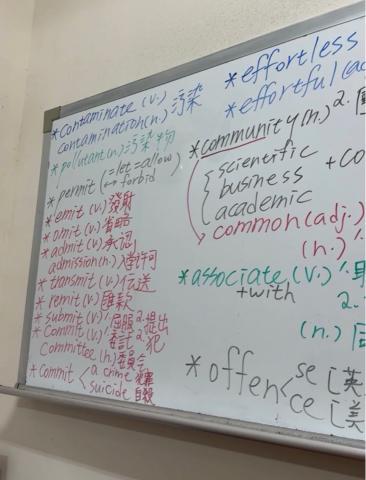 *contaminate (v.) 污染
contamination (n.)
*pollutant (n.) 污染物
*permit (=let =allow)
(↔ forbid)
*emit (v.) 發散
*omit (v.) 省略
*admit (v.) 承認
admission (n.) 入學許可
*transmit (v.) 伝送
*remit (v.) 匯款
*submit (v.) 1. 屈服 2. 提出
*commit (v.) 1. 委託 2. 犯
committee (n.) 委員会
*commit < a crime 犯罪
suicide 自殺
*effortless
*effortful (a
*community (n.) 2.
scientific
business + co
academic
common (adj.)
(n.) 1.
*associate (v.) 1.
+with
2.
(n.)
*offen < se [英
ce [美